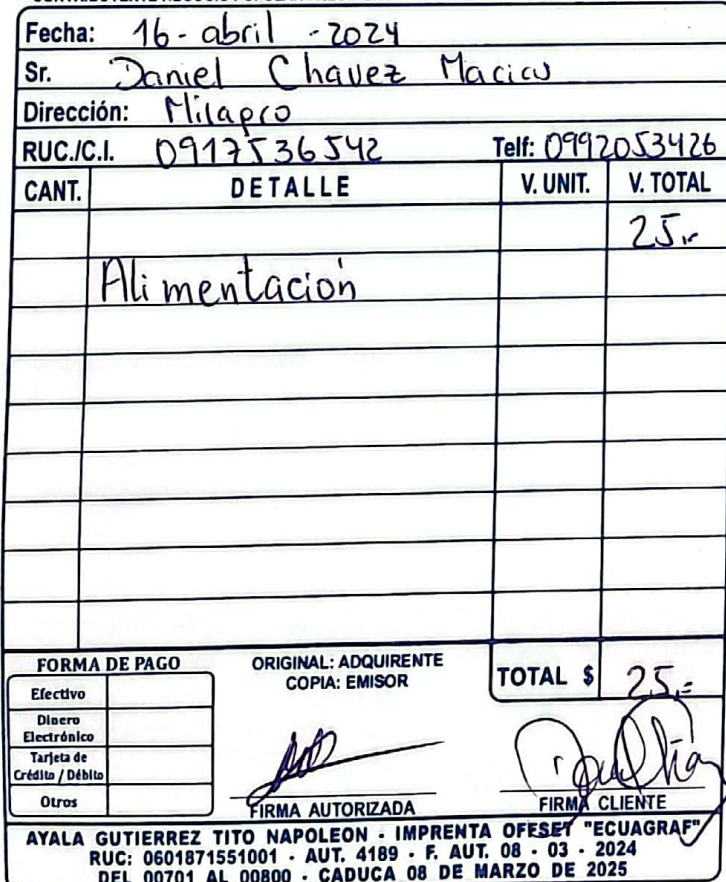 Fecha: 16 - abril - 2024
Sr. Daniel Chavez Macias
Dirección: Milagro
RUC./C.I. 0917536542 Telf: 0992053426
CANT. DETALLE V. UNIT. V. TOTAL
25,-
Alimentación
FORMA DE PAGO
Efectivo
Dinero
Electrónico
Tarjeta de
Crédito / Débito
Otros
ORIGINAL: ADQUIRENTE
COPIA: EMISOR
TOTAL $ 25,=
FIRMA AUTORIZADA
FIRMA CLIENTE
AYALA GUTIERREZ TITO NAPOLEON - IMPRENTA OFESET "ECUAGRAF"
RUC: 0601871551001 - AUT. 4189 - F. AUT. 08 - 03 - 2024
DEL 00701 AL 00800 - CADUCA 08 DE MARZO DE 2025